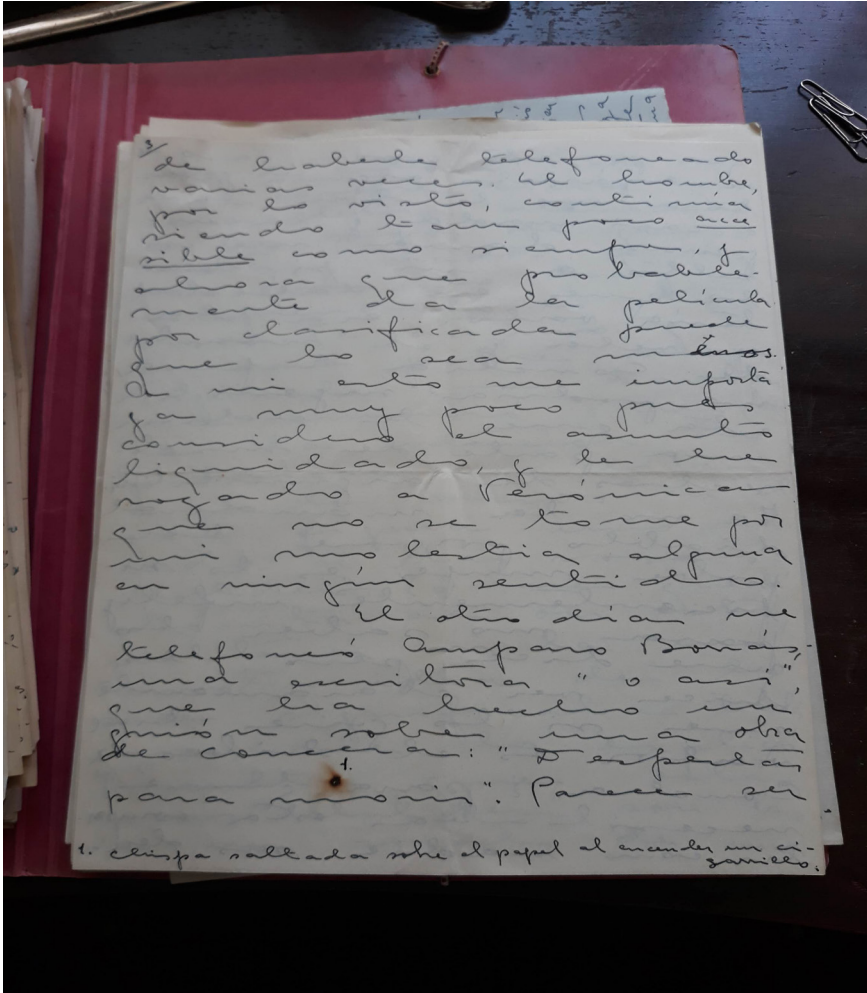 3/
de haberle telefoneado
varias veces. El hombre,
por lo visto, continúa
siendo tan poco acce
sible como siempre, y
ahora que probable-
mente da la película
por clasificada puede
que lo sea menos.
A mi esto me importa
ya muy poco pues
considero el asunto
liquidado, y le he
rogado a Verónica
que no se tome por
mi molestia alguna
en ningún sentido.
El otro día me
telefoneó Amparo Bonás,
una escritora "o así",
que ha hecho un
guión sobre una obra
de concena: "Despertar
1.
para morir". Parece ser
1. chispa saltada sobre el papel al encender un ci-
garrillo.